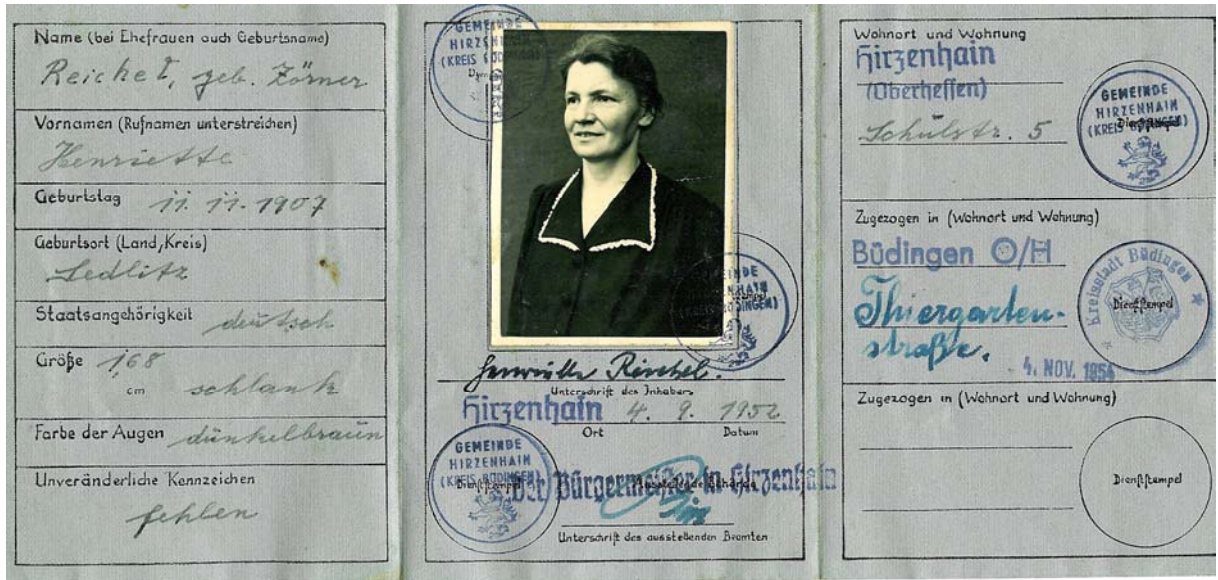 Name (bei Ehefrauen auch Geburtsname)
Reichel, geb. Zörner
Vornamen (Rufnamen unterstreichen)
Henriette
Geburtstag 11. 11. 1907
Geburtsort (Land, Kreis)
Sedlitz
Staatsangehörigkeit deutsch
Größe 1,68
cm schlank
Farbe der Augen dunkelbraun
Unveränderliche Kennzeichen
fehlen
GEMEINDE
HIRZENHAIN
(KREIS BÜDINGEN)
GEMEINDE
HIRZENHAIN
(KREIS BÜDINGEN)
Henriette Reichel.
Unterschrift des Inhabers
Hirzenhain 4. 9. 1952
Ort Datum
GEMEINDE
HIRZENHAIN
(KREIS BÜDINGEN)
Dienststempel
Der Bürgermeister in Hirzenhain
Ausstellende Behörde
Unterschrift des ausstellenden Beamten
Wohnort und Wohnung
Hirzenhain
(Oberhessen)
Schulstr. 5
GEMEINDE
HIRZENHAIN
(KREIS BÜDINGEN)
Dienststempel
Zugezogen in (Wohnort und Wohnung)
Büdingen O/H
Thiergarten-
straße.
4. NOV. 1954
Kreisstadt Büdingen
Dienststempel
Zugezogen in (Wohnort und Wohnung)
Dienststempel